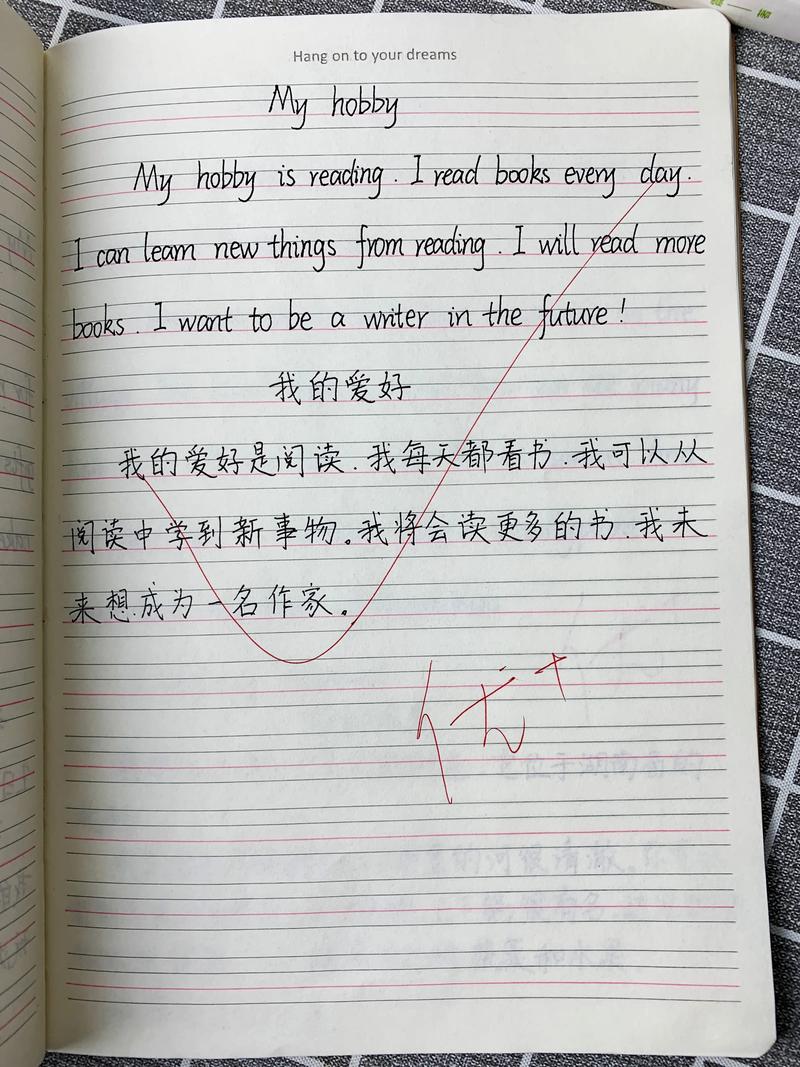 Hang on to your dreams
My hobby
My hobby is reading. I read books every day.
I can learn new things from reading. I will read more
books. I want to be a writer in the future!
我的爱好
我的爱好是阅读.我每天都看书.我可以从
阅读中学到新事物。我将会读更多的书.我未
来想成为一名作家。
优+